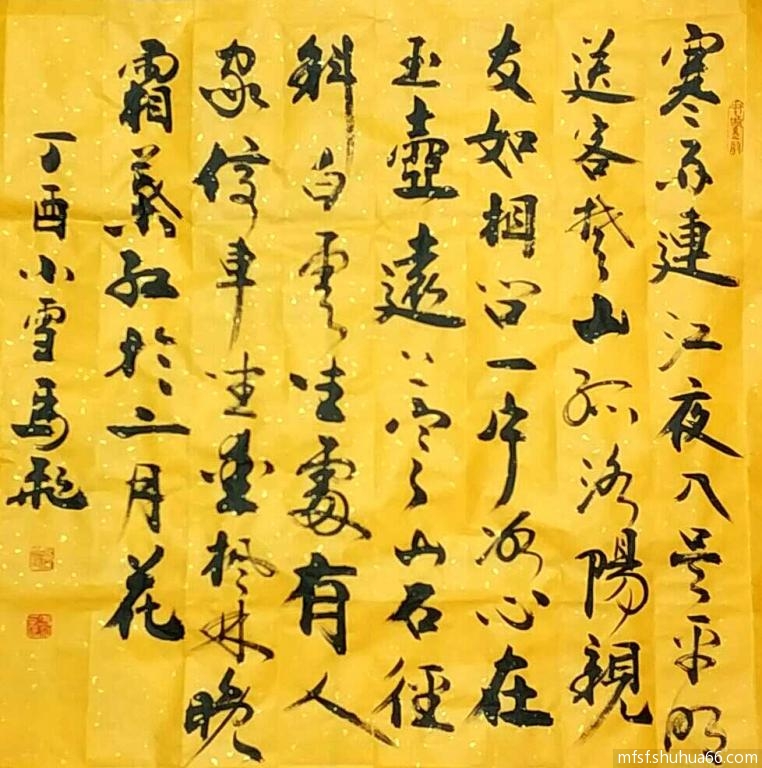 寒雨連江夜入吴平明
送客楚山孤洛陽親
友如相问一片冰心在
玉壺遠上寒山石徑
斜白雲生處有人
家停車坐愛楓林晚
霜葉红於二月花
丁酉小雪馬飛
mfsf.shuhua66.com